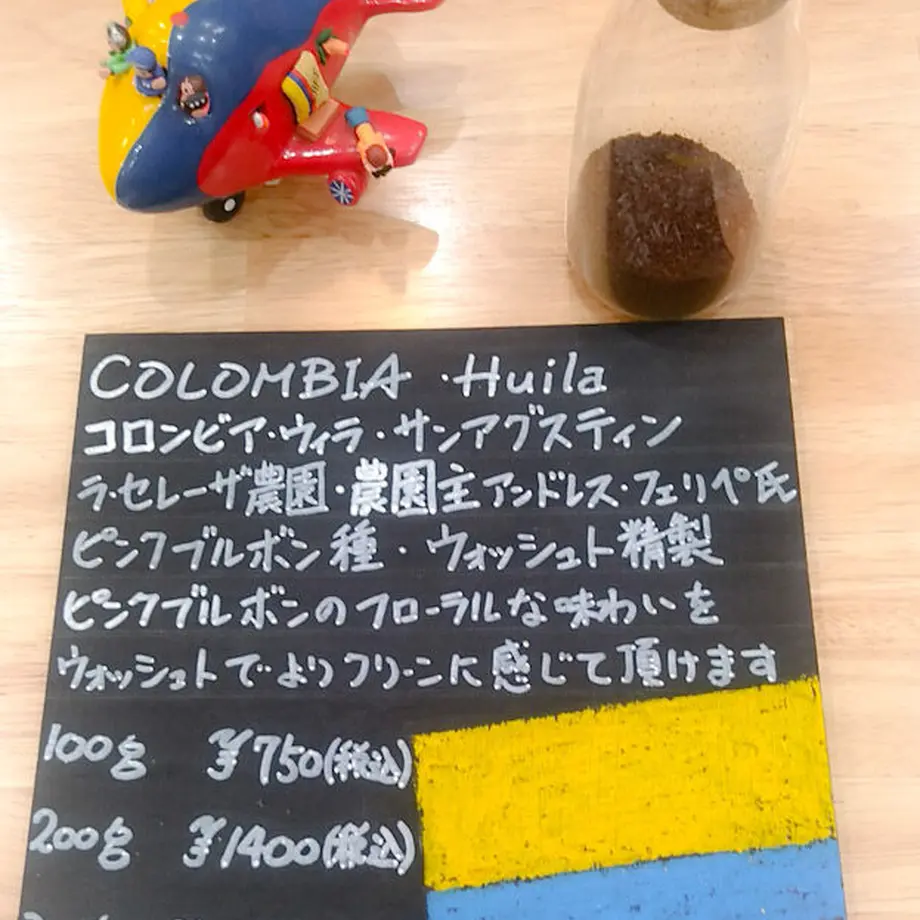 COLOMBIA ・Huila
コロンビア・ウィラ・サンアグスティン
ラ・セレーザ農園・農園主アンドレス・フェリペ氏
ピンクブルボン種・ウォッシュト精製
ピンクブルボンのフローラルな味わいを
ウォッシュトでよりクリーンに感じて頂けます
100g ¥750(税込)
200g ¥1400(税込)